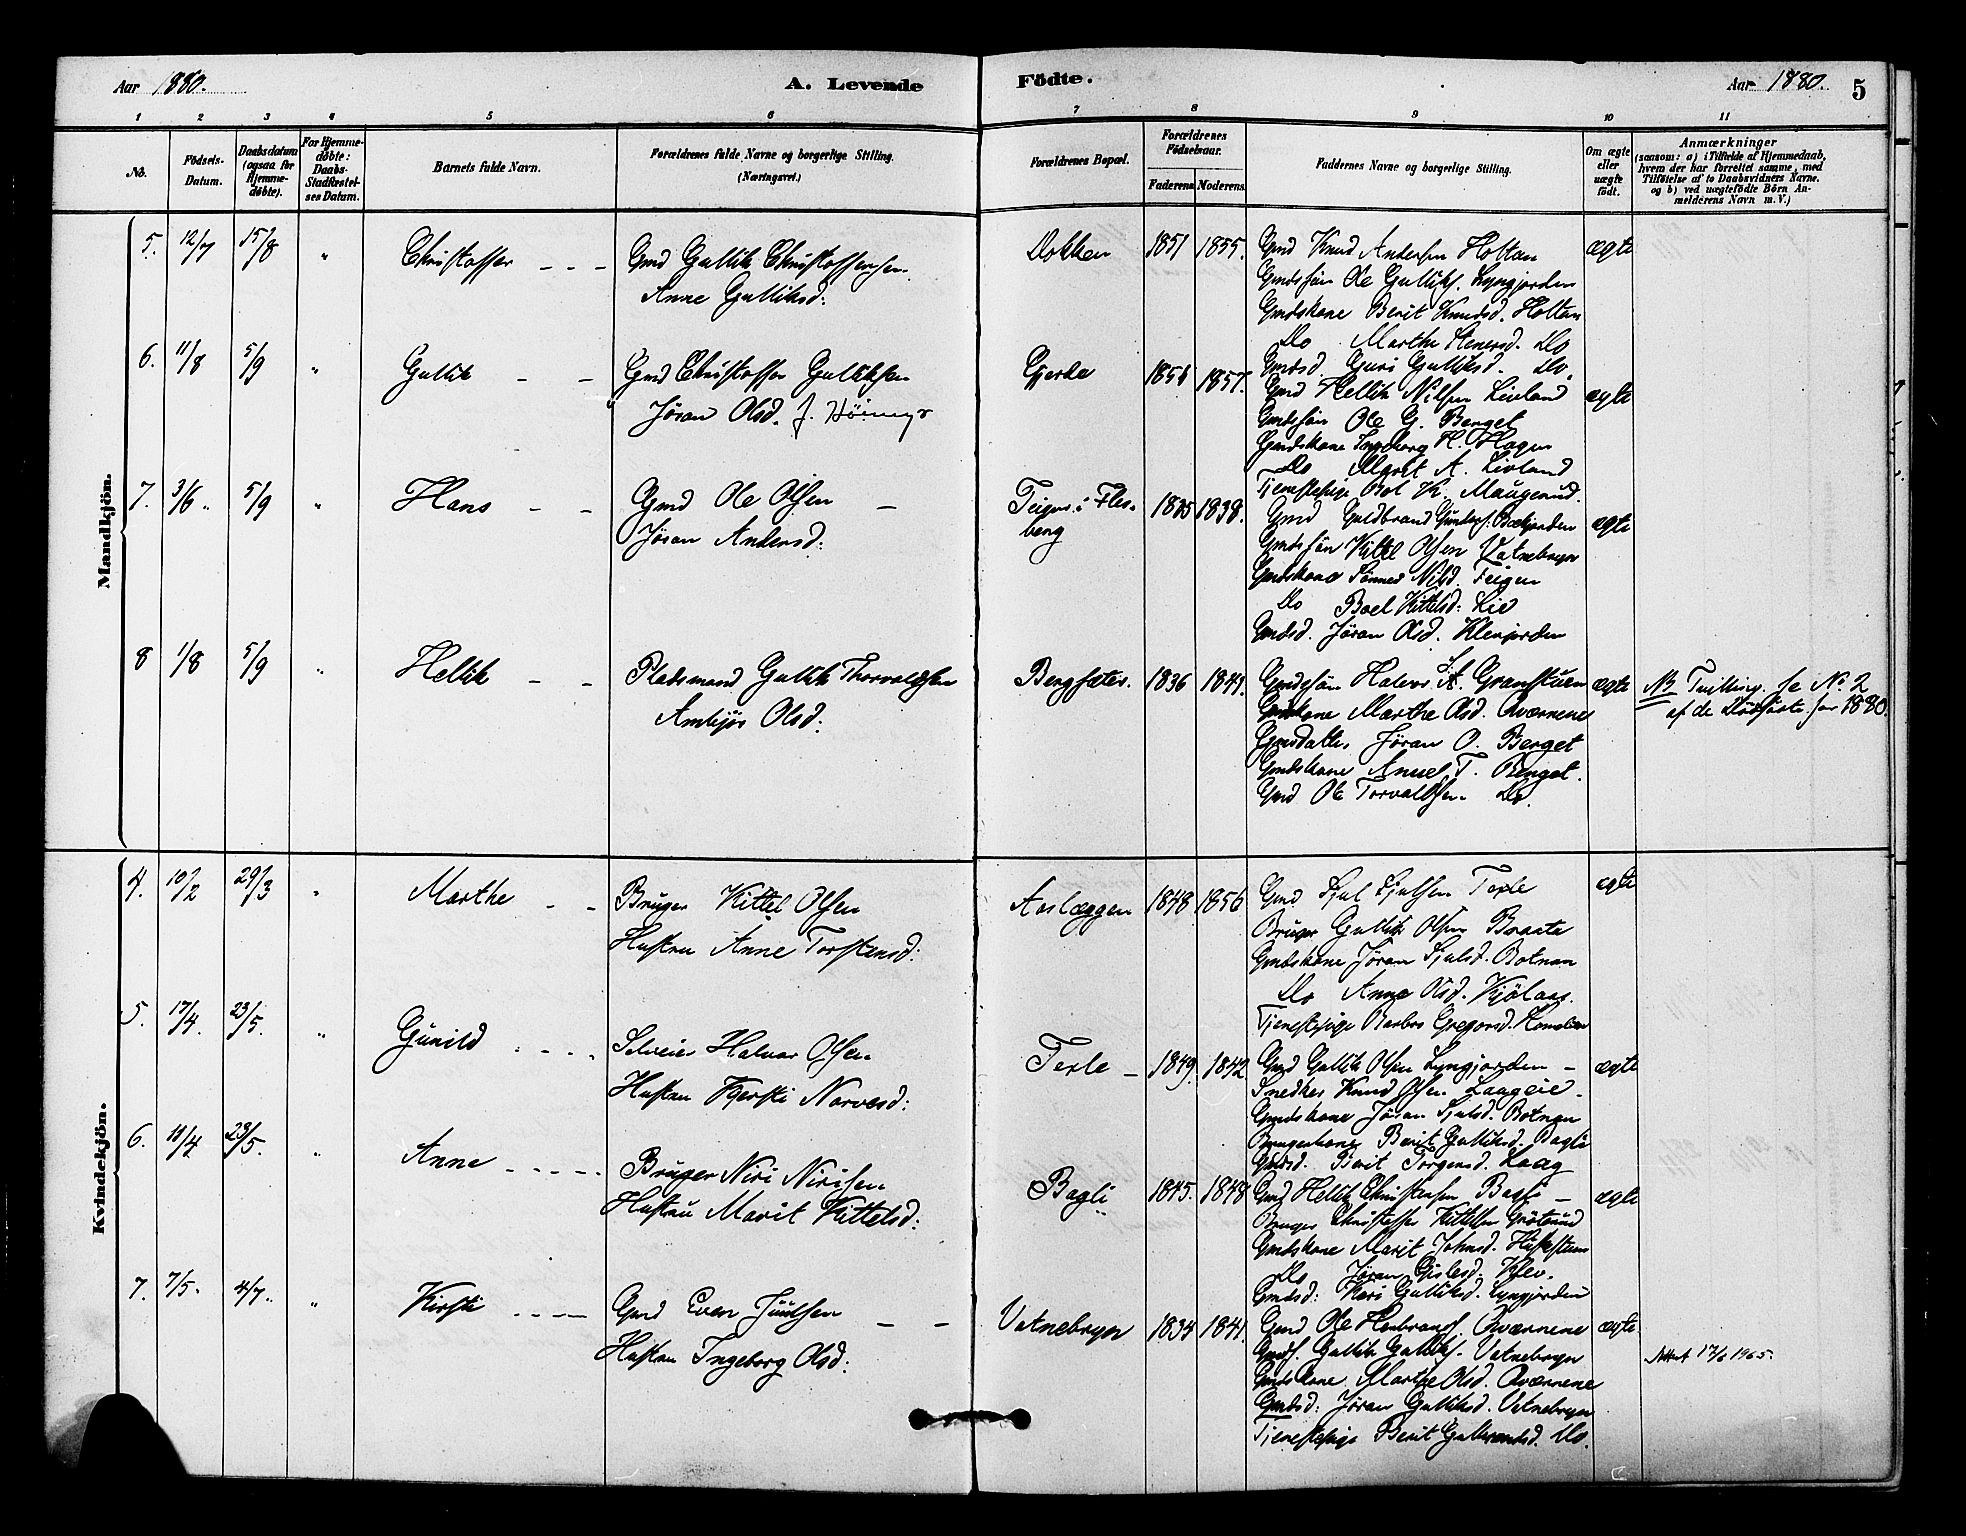 Aar 1880. A. Levende Födte. Aar 1880. 5
1 2 3 4 5 6 7 8 9 10 11
No.
Födsels-Datum.
Daabsdatum (ogsaa for Hjemmedöbte).
For Hjemmedöbte: Daabs-Stadfæstelses Datum.
Barnets fulde Navn.
Forældrenes fulde Navne og borgerlige Stilling. (Næringsvei.)
Forældrenes Bopæl.
Forældrenes Födselsaar.
Faderens. Moderens.
Faddernes Navne og borgerlige Stilling.
Om ægte eller uægte födt.
Anmærkninger
(saasom: a) i Tilfælde af Hjemmedaab, hvem der har forrettet samme, med Tilföielse af to Daabsvidners Navne, og b) ved uægtefödte Börn Anmelderens Navn m. V.)
Mandkjön.
5. 12/7 15/8 " Christoffer - - - Gmd Gullik Christoffersen.
Anne Gulliksd:
Dokken 1851 1855. ægte
Gmd Knud Andersen Holtan
Gmdssön Ole Gulliks. Lyngjorden
Gmdskone Berit Knudsd. Holtan
Do Marthe Stenersd. Do
Gmdsd. Guri Gulliksd. Do.
6. 11/8 5/9 " Gullik - - Gmd Christoffer Gulliksen
Jøran Olsd.
Gjerde 1857. ægte
Gmd Hellik Nilsen Livland
Gmdssön Ole G. Berget
Gmdskone Ingeborg H. Hagen
Do Marit A. Livland
Tjenestepige Bol K. Maugerud.
7. 3/6. 5/9 " Hans - - Gmd Ole Olsen -
Jøran Andersd:
Teigen i Flesberg 1835 1838. ægte
Gmd Guldbrand Gunders. Bækjorden
Gmdssön Kittel Olsen Vatnebryn
Gmdskone Sönnev Nilsd. Teigen
Do Boel Kittelsd: Lie
Gmdsd. Jøran Olsd. Klevjorden
8 1/8 5/9 " Hellik - - Pladsmand Gullik Thorvaldsen
Ambjør Olsd:
Bergsæter. 1836 1841. ægte
Gmdssön Halvor A. Granstuen
Gmdskone Marthe Olsd. Qværnene
Gmdsdatter Jøran O. Berget
Gmdskone Anne T. Berget.
Gmd Ole Torvaldsen Do.
NB Tvilling. se No. 2
af de Dødfødte for 1880.
Kvindekjön.
4. 10/2 29/3 " Marthe - - Bruger Kittel Olsen
Hustru Anne Torstensd:
Aaslæggen 1848 1856 ægte
Gmd Sjul Sjulsen Texle
Bruger Gullik Olsen Braata
Gmdskone Jøran Sjulsd. Botnan
Do Anne Olsd. Kjölaas.
Tjenestepige Barbro Gregorsd.
5. 17/4. 23/5. " Gunild - - - - Selveier Halvor Olsen
Hustru Kjersti Narvesd:
Texle - 1849. 1842 ægte
Gmd Gullik Olsen Lyngjorden -
Snedker Knud Olsen Laageie -
Gmdskone Jøran Sjulsd. Botnan
Brugerkone Berit Gulliksd. Bagli
Gmdsd. Berit Torgersd. Laag
6. 11/4 23/5. " Anne - - - - - Bruger Niri Nirisen
Hustru Marit Kittelsd:
Bagli 1845. 1848 ægte
Gmd Hellik Christensen Bagli -
Bruger Christoffer Kittelsen
Gmdskone Marit Johnsd.
Do Jøran Gislesd. Klev.
Gmdsd: Kari Gulliksd. Lyngjorden
7. 7/5. 4/7. " Kirsti - - - - Gmd Even Juulsen - -
Hustru Ingeborg Olsd:
Vatnebryn 1834 1841. ægte
Gmd Ole Halbrands. Qværnene
Gmds. Gullik Gulliks. Vatnebryn
Gmdskone Marthe Olsd. Qværnene
Gmdsd: Jøran Gulliksd. Vatnebryn
Tjenestepige Berit Gulbrandsd. Do.
Attest 17/6 1965.